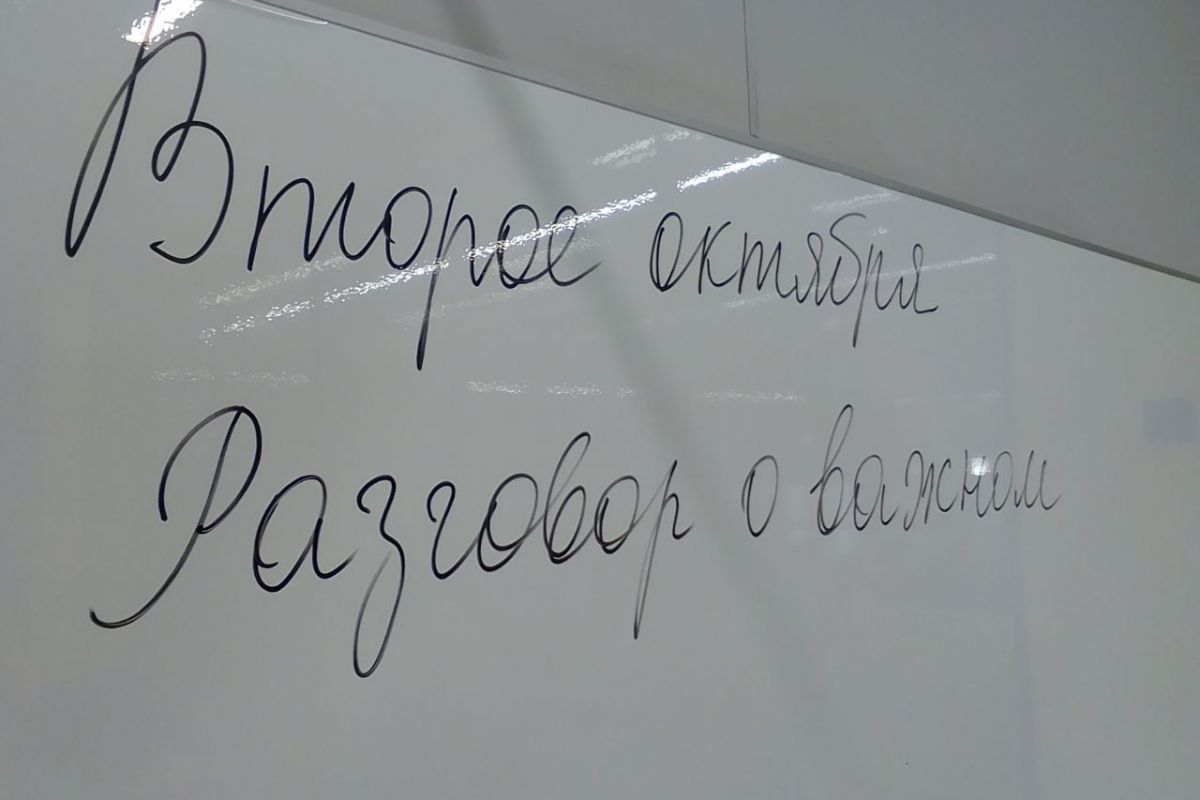 Второе октября
Разговор о важном